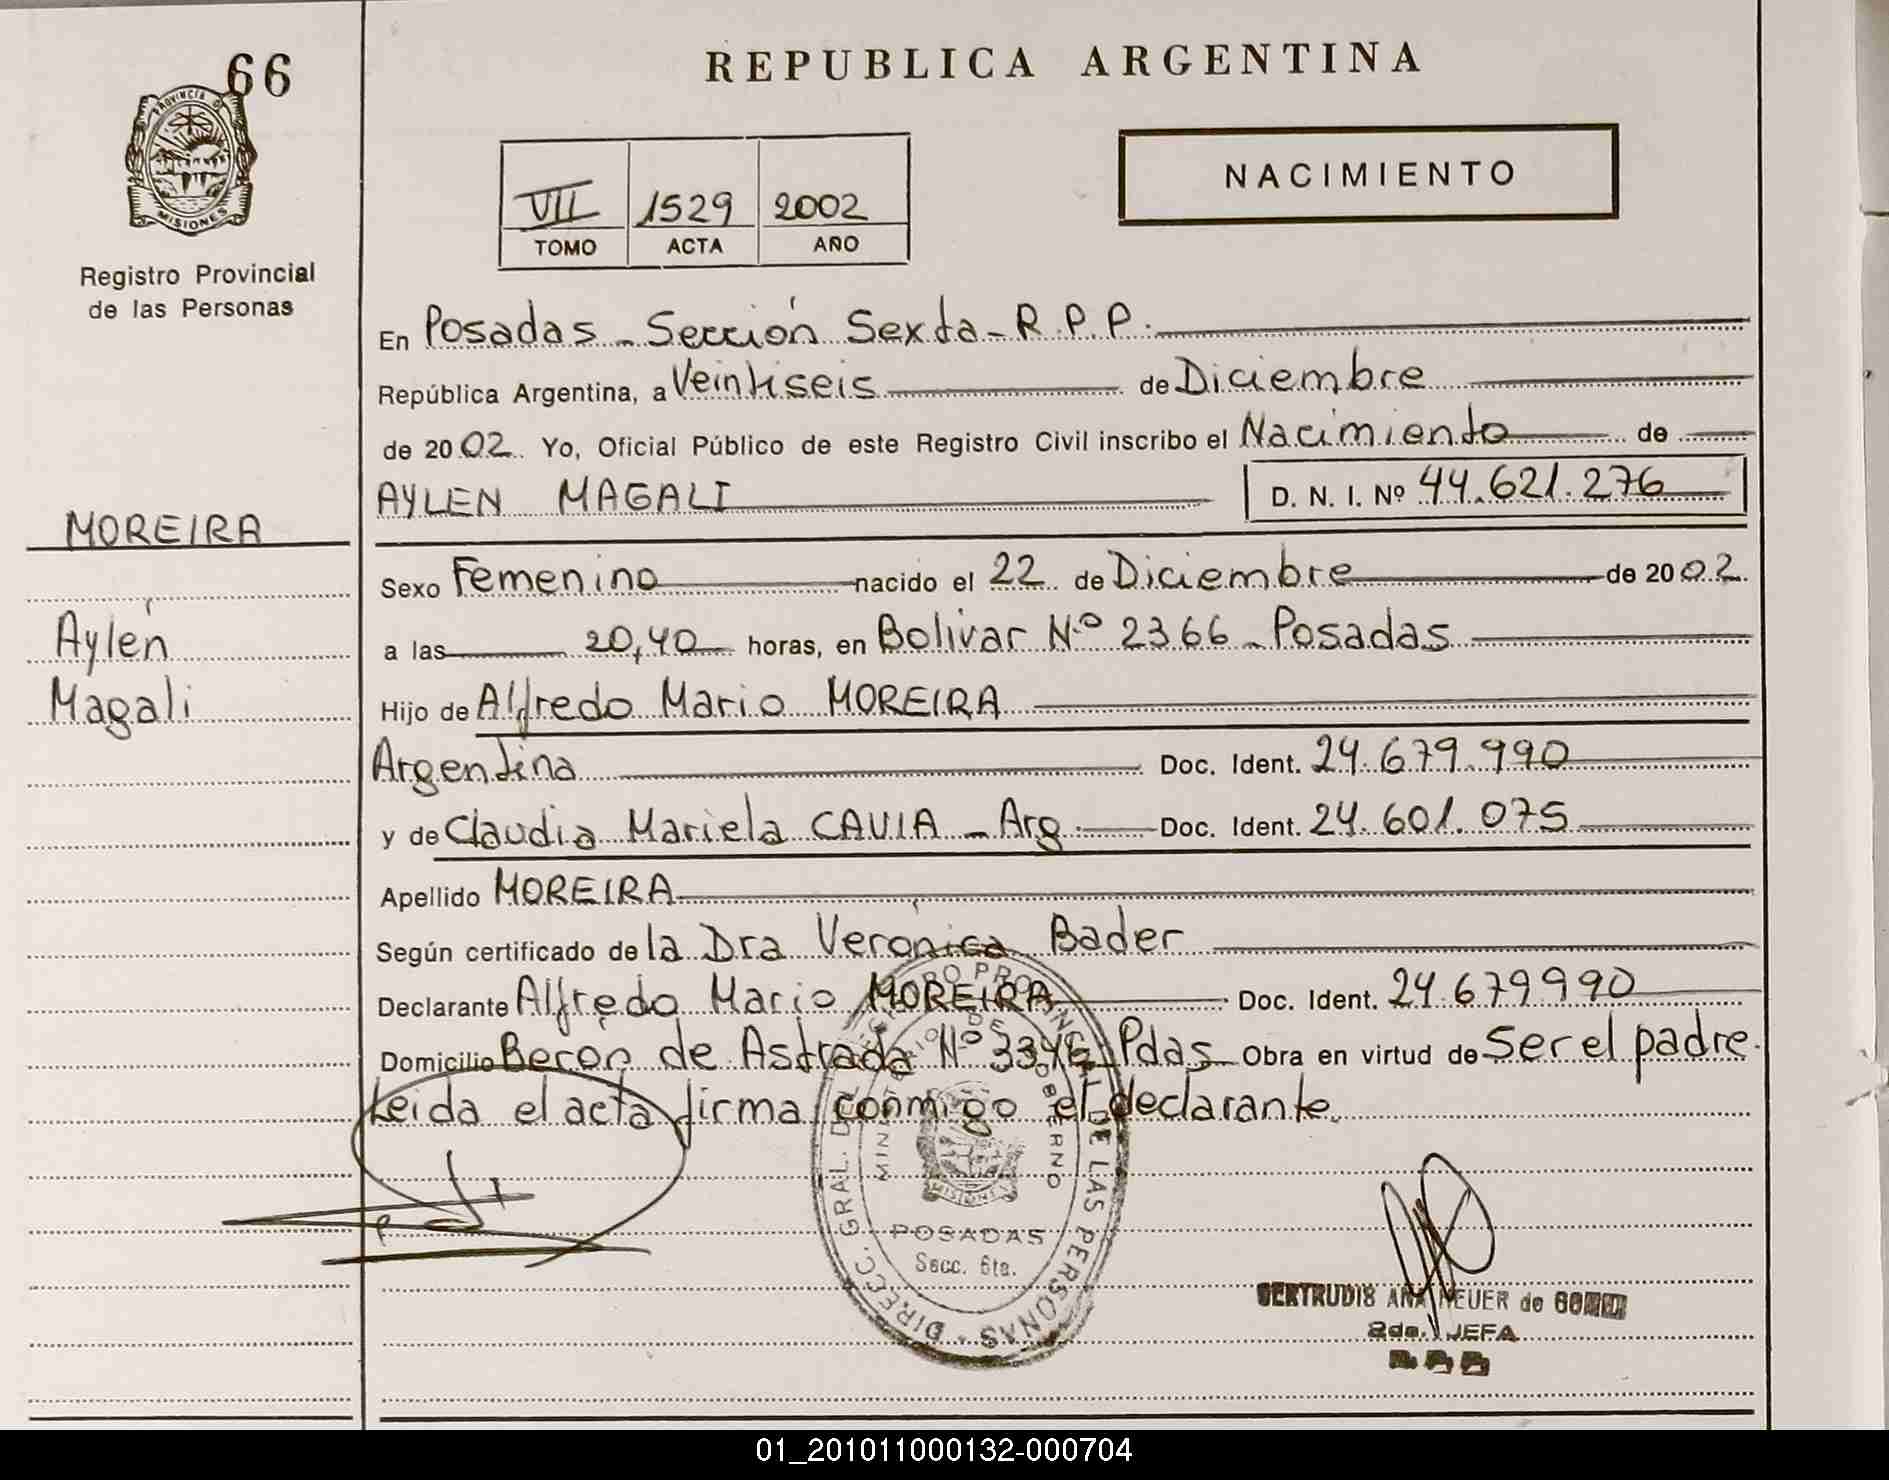 66
PROVINCIA DE
MISIONES
Registro Provincial
de las Personas
MOREIRA
Aylén
Magali
REPUBLICA ARGENTINA
VII 1529 2002
TOMO ACTA AÑO
NACIMIENTO
En Posadas - Sección Sexta - R.P.P.
República Argentina, a Veintiseis de Diciembre
de 2002. Yo, Oficial Público de este Registro Civil inscribo el Nacimiento de
AYLEN MAGALI D. N. I. Nº 44.621.276
Sexo Femenino nacido el 22 de Diciembre de 2002.
a las 20,40 horas, en Bolivar Nº 2366 - Posadas
Hijo de Alfredo Mario MOREIRA
Argentina Doc. Ident. 24.679.990
y de Claudia Mariela CAVIA - Arg. Doc. Ident. 24.601.075
Apellido MOREIRA
Según certificado de la Dra Verónica Bader
Declarante Alfredo Mario MOREIRA Doc. Ident. 24.679990
Domicilio Beron de Astrada Nº 3346 Pdas Obra en virtud de Ser el padre.
Leida el acta firma conmigo el declarante.
DIRECC. GRAL. DEL REGISTRO PROVINCIAL DE LAS PERSONAS
MINISTERIO DE GOBIERNO
MISIONES
POSADAS
Secc. 6ta.
GERTRUDIS ANA NEUER de
2da. JEFA
01_201011000132-000704